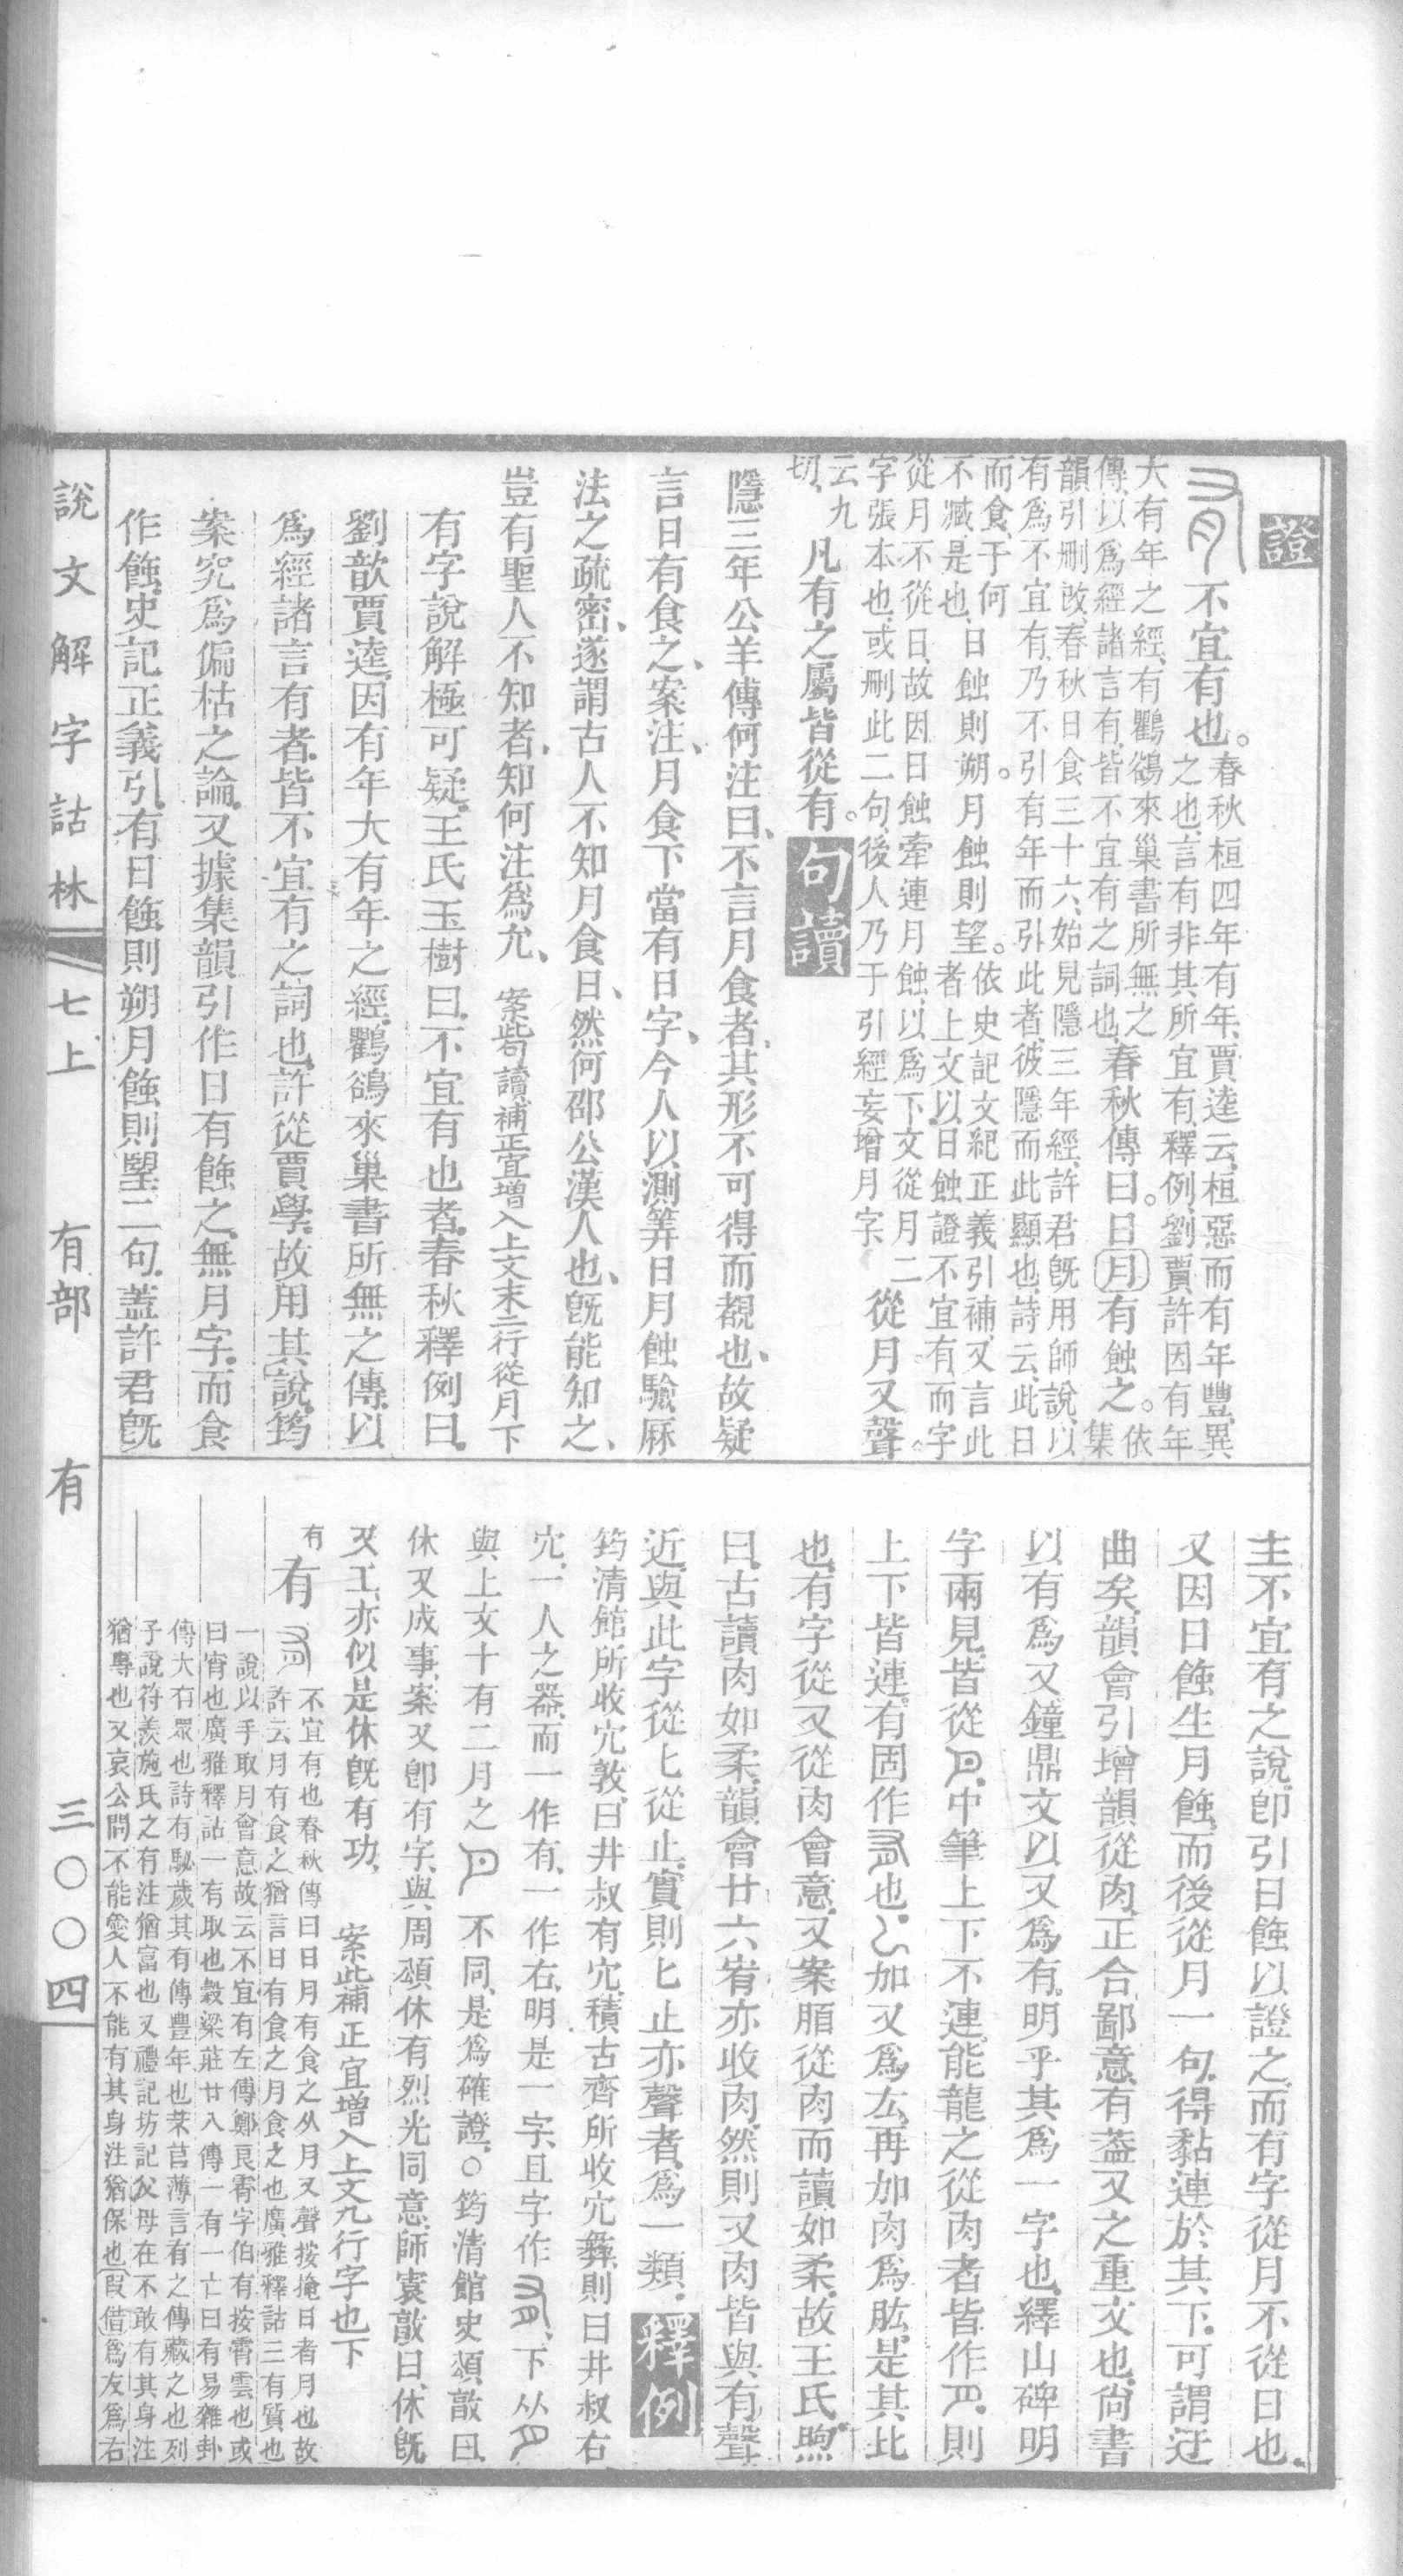 證
不宜有也。春秋桓四年有年、賈逵云、桓惡而有年豐、異
之也、言有非其所宜有、釋例、劉賈許因有年
大有年之經、有鸜鵒來巢書所無之
傳、以爲經諸言有、皆不宜有之詞也、春秋傳曰。日月有蝕之。依集
韻引刪改、春秋日食三十六、始見隱三年經、許君旣用師說、以
有爲不宜有、乃不引有年而引此者、彼隱而此顯也、詩云、此日
而食、于何
不臧、是也、日蝕則朔。月蝕則望。依史記文紀正義引補、又言此
者上文以日蝕證不宜有、而字
從月不從日、故因日蝕牽連月蝕、以爲下文從月二
字張本也、或刪此二句、後人乃于引經妄增月字、從月又聲。
云九
切、凡有之屬皆從有。句讀
隱三年公羊傳何注曰、不言月食者、其形不可得而覩也、故疑
言日有食之、案注、月食下當有日字、今人以測筭日月蝕驗厤
法之疏密、遂謂古人不知月食日、然何邵公漢人也、旣能知之、
豈有聖人不知者、知何注爲允、案此句讀補正宜增入上文末二行從月下
有字說解極可疑、王氏玉樹曰、不宜有也者、春秋釋例曰、
劉歆賈逵、因有年大有年之經、鸜鵒來巢書所無之傳、以
爲經諸言有者、皆不宜有之詞也、許從賈學、故用其說、筠
案究爲偏枯之論、又據集韻引作日有蝕之、無月字、而食
作蝕、史記正義引、有日蝕則朔月蝕則望二句、蓋許君旣
主不宜有之說、卽引日蝕以證之、而有字從月不從日也、
又因日蝕生月蝕、而後從月一句、得黏連於其下、可謂迂
曲矣、韻會引增韻從肉、正合鄙意、有蓋又之重文也、尙書
以有爲又、鐘鼎文以又爲有、明乎其爲一字也、繹山碑明
字兩見、皆從、中筆上下不連、能龍之從肉者皆作、則
上下皆連、有固作也、加又爲厷、再加肉爲肱、是其比
也、有字從又從肉會意、又案脜從肉而讀如柔、故王氏煦
曰、古讀肉如柔、韻會廿六宥亦收肉、然則又肉皆與有聲
近、與此字從匕從止、實則匕止亦聲者、爲一類、釋例
筠清館所收宂敦、曰井叔有宂、積古齊所收宂彝、則曰井叔右
宂、一人之器、而一作有、一作右、明是一字、且字作、下从
與上文十有二月之不同、是爲確證、○筠清館史頌敼曰、
休又成事、案又卽有字、與周頌休有烈光同意、師寰敼曰、休旣
又工、亦似是休旣有功、案此補正宜增入上文九行字也下
有
有不宜有也春秋傳曰日月有食之从月又聲按掩日者月也故
許云月有食之猶言日有食之月食之也廣雅釋詁三有質也
一說以手取月會意故云不宜有左傳鄭良霄字伯有按霄雲也或
曰宵也廣雅釋詁一有取也穀梁莊廿八傳一有一亡曰有易雜卦
傳大有眾也詩有駜歲其有傳豐年也芣苢薄言有之傳藏之也列
子說符羨施氏之有注猶富也又禮記坊記父母在不敢有其身注
猶專也又哀公問不能愛人不能有其身注猶保也叚借爲友爲右
說文解字詁林 七上 有部 有 三〇〇四